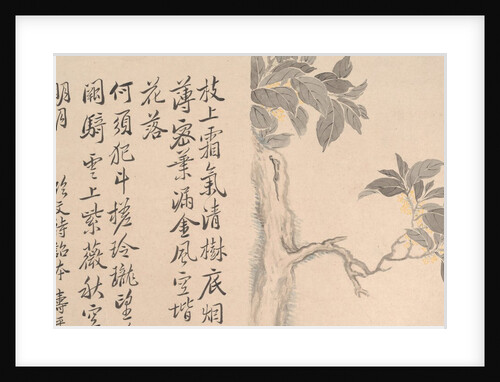 枝上霜氣清樹底烟
薄密葉漏金風空堦
花落
何須犯斗槎玲瓏望
闕騎雲上紫薇秋空
明月 臨文待詔本 壽平